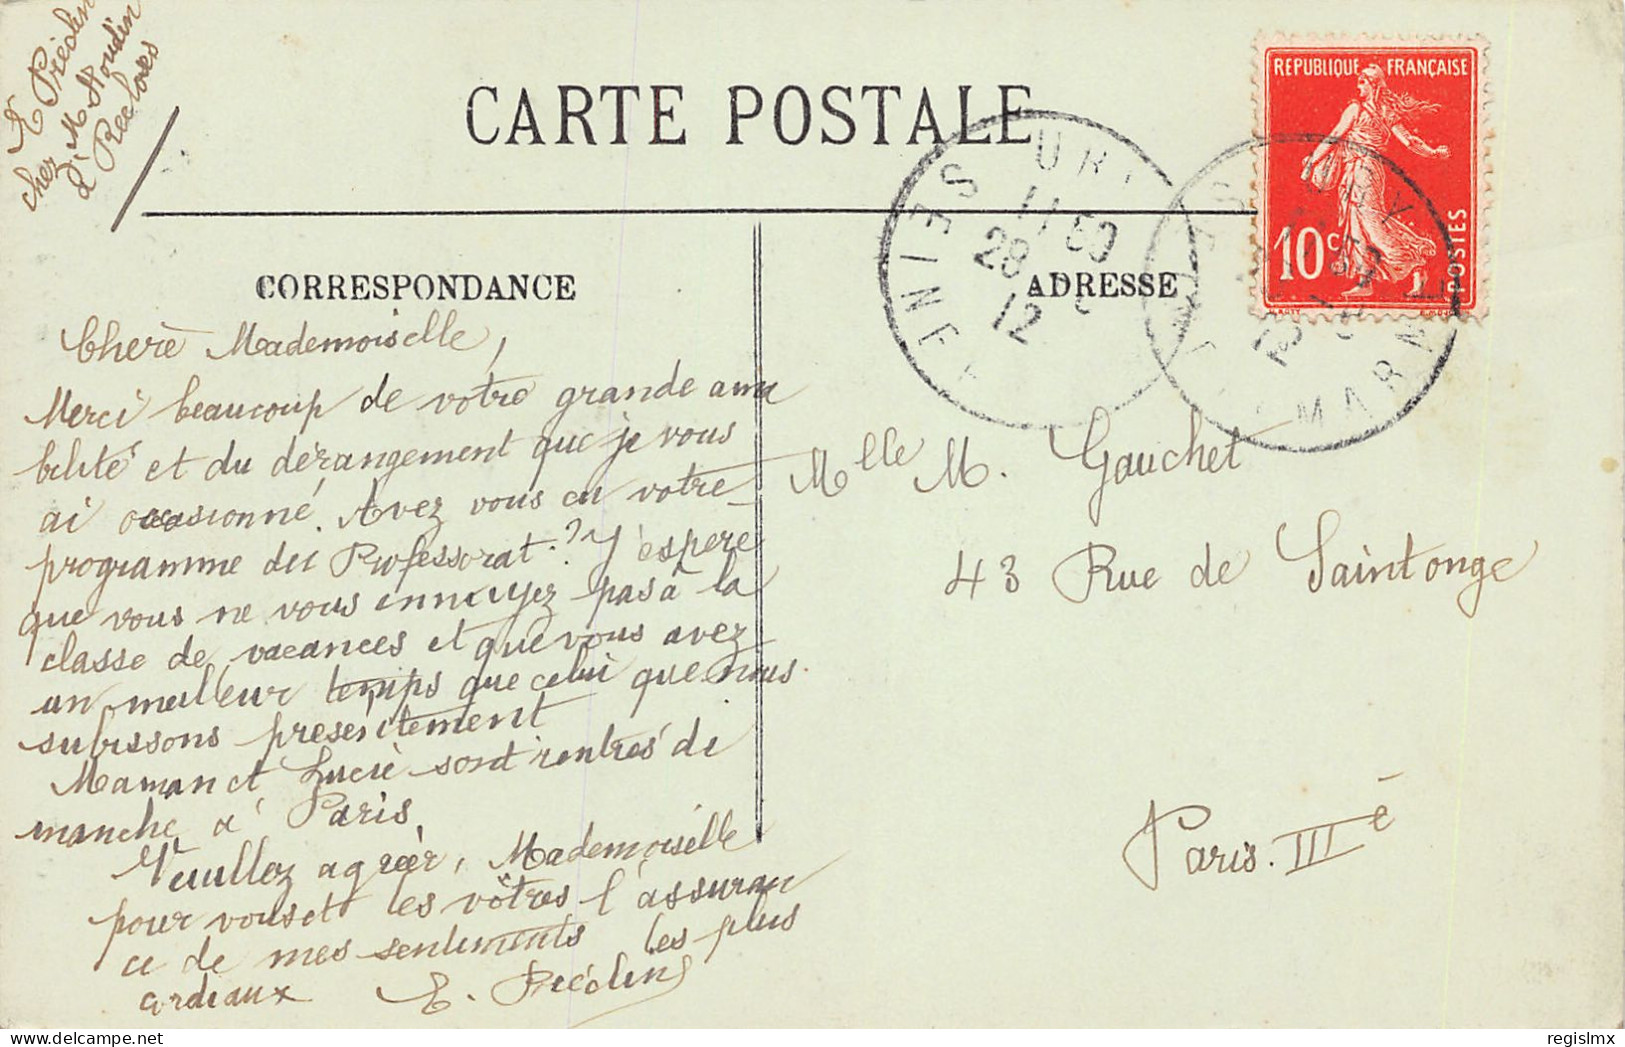 E Piéolin
chez M. Houdin
à Recloses
CARTE POSTALE
CORRESPONDANCE
ADRESSE
REPUBLIQUE FRANÇAISE
10c
POSTES
URY
SEINE
11 30
28
12
URY
MARNE
Chère Mademoiselle,
Merci beaucoup de votre grande ama
bilité et du dérangement que je vous
ai occasionné. Avez vous eu votre
programme du Professorat? J'espère
que vous ne vous ennuyez pas à la
classe de vacances et que vous avez
un meilleur temps que celui que nous
subissons présentement
Maman et Lucie sont rentrés di
manche à Paris.
Veuillez agréer, Mademoiselle
pour vous et les vôtres l'assuran
ce de mes sentiments les plus
cordiaux E. Piéolin
Mlle M. Gauchet
43 Rue de Saintonge
Paris. IIIe
delcampe.net
regislmx